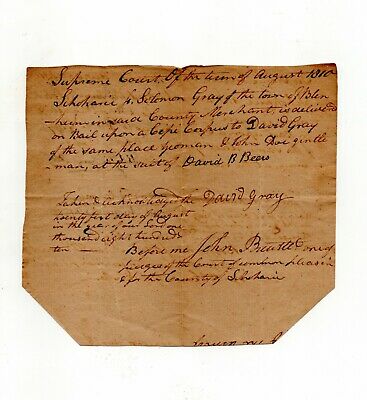 Supreme Court. Of the term of August 1810
Schoharie ss. Solomon Gray of the town of Blen
-heim in said County Merchant, is delivered
on Bail upon a Cepi Corpus to David Gray
of the same place yeoman & John Doe gentle
-man, at the suit of David B Beers
Taken & acknowledged the David Gray
twenty first day of August
in the year of our Lord one
thousand eight hundred
ten — Before me John one of
judges of the Court of common pleas in
& for the County of Schoharie